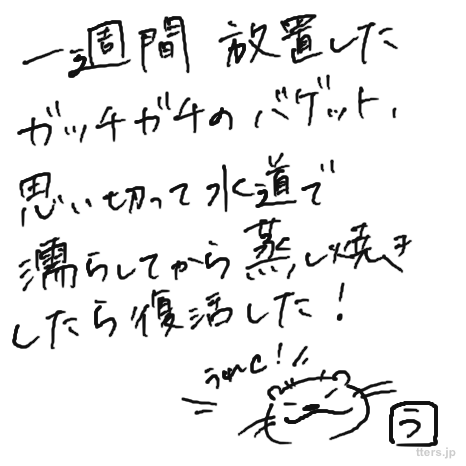 一週間 放置した
ガッチガチのバゲット、
思い切って水道で
濡らしてから蒸し焼き
したら復活した！
うれC！！
う
tters.jp